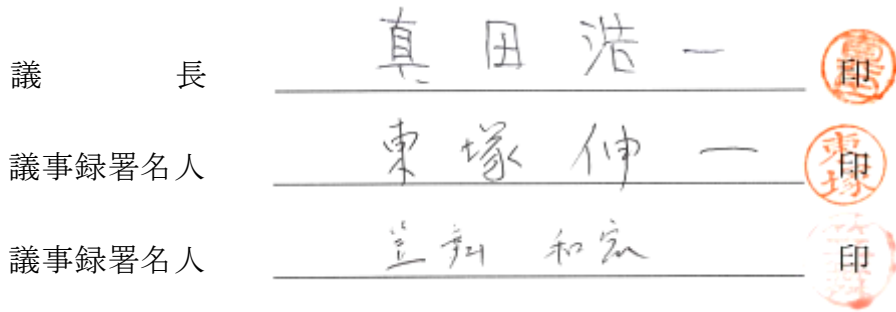 議長 真田浩一 印
議事録署名人 東塚伸一 印
議事録署名人 和宏 印